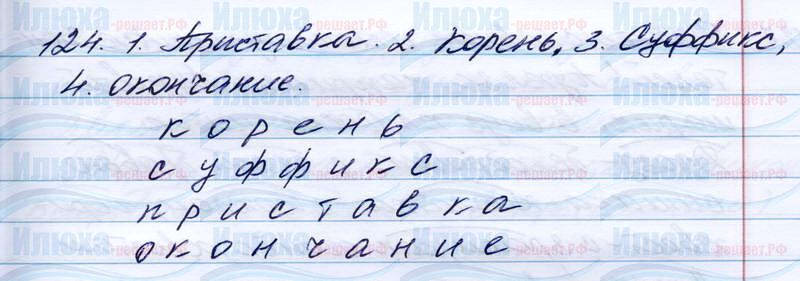 124. 1. Приставка. 2. Корень, 3. Суффикс,
4. окончание.
корень
суффикс
приставка
окончание